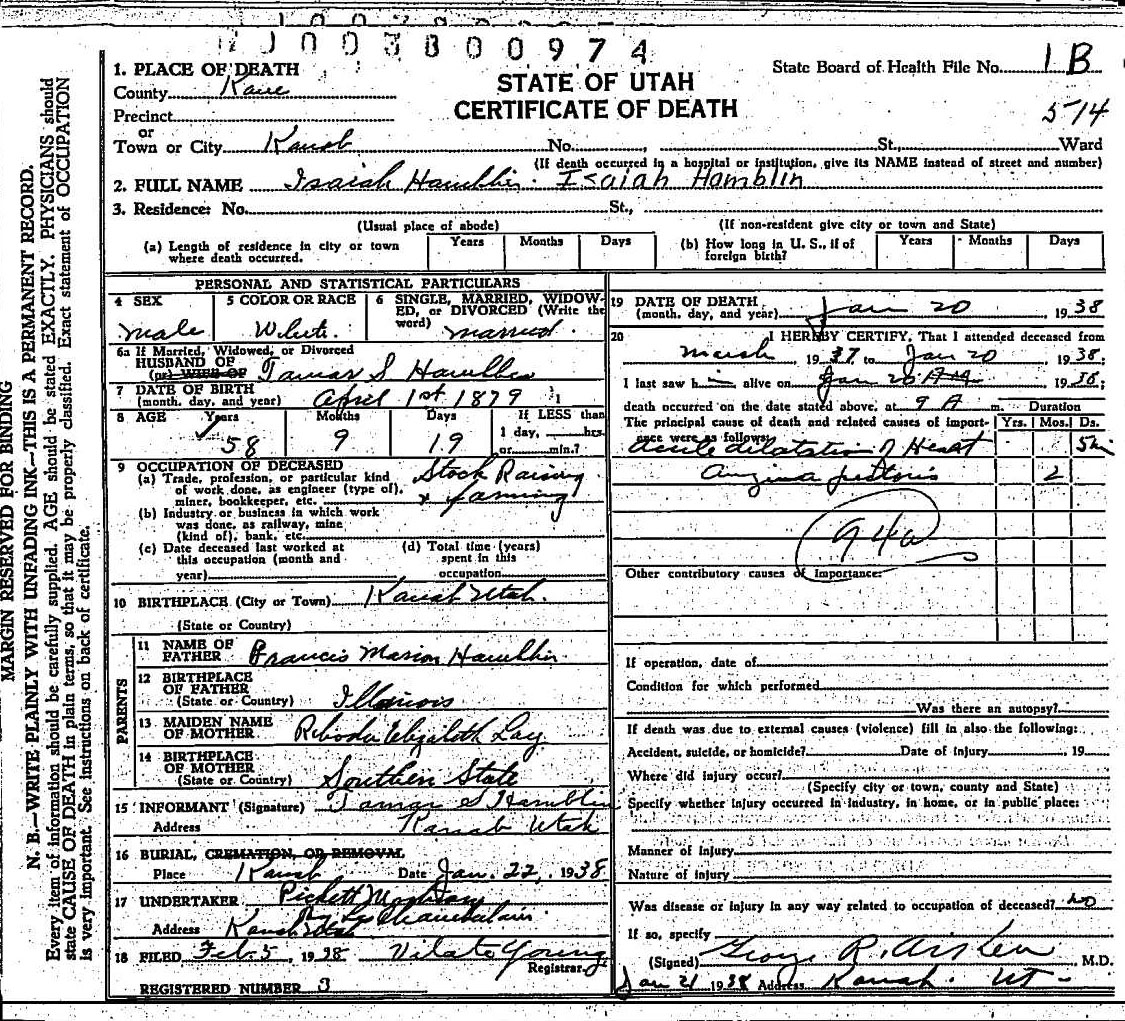 1003800974
1. PLACE OF DEATH
County Kane
Precinct
or
Town or City Kanab No. St., Ward
STATE OF UTAH
CERTIFICATE OF DEATH
State Board of Health File No. 1B
514
(If death occurred in a hospital or institution, give its NAME instead of street and number)
2. FULL NAME Isaiah Hamblin. Isaiah Hamblin
3. Residence: No. St.,
(Usual place of abode) (If non-resident give city or town and State)
(a) Length of residence in city or town where death occurred. Years Months Days
(b) How long in U. S., if of foreign birth? Years Months Days
PERSONAL AND STATISTICAL PARTICULARS
4 SEX
male
5 COLOR OR RACE
White
6 SINGLE, MARRIED, WIDOWED, or DIVORCED (Write the word)
married.
6a If Married, Widowed, or Divorced
HUSBAND OF
(or) WIFE OF Tamar S Hamblin
7 DATE OF BIRTH
(month, day, and year) April 1st 1879
8 AGE Years Months Days If LESS than
58 9 19 1 day, hrs.
or min.?
9 OCCUPATION OF DECEASED
(a) Trade, profession, or particular kind
of work done, as engineer (type of),
miner, bookkeeper, etc.
Stock Raising
& farming
(b) Industry or business in which work
was done, as railway, mine
(kind of), bank, etc.
(c) Date deceased last worked at
this occupation (month and
year)
(d) Total time (years)
spent in this
occupation
10 BIRTHPLACE (City or Town) Kanab Utah.
(State or Country)
PARENTS
11 NAME OF
FATHER Francis Marion Hamblin
12 BIRTHPLACE
OF FATHER
(State or Country) Illinois
13 MAIDEN NAME
OF MOTHER Elizabeth
14 BIRTHPLACE
OF MOTHER
(State or Country) Southern State
15 INFORMANT (Signature) Tamar S Hamblin
Address Kanab Utah
16 BURIAL, CREMATION, OR REMOVAL
Place Kanab Date Jan. 22, 1938
17 UNDERTAKER Pickett Mortuary
By Chamberlain
Address Kanab Utah
18 FILED Feb. 5, 1938 Vilate Young
Registrar.
REGISTERED NUMBER 3
19 DATE OF DEATH
(month, day, and year) Jan 20, 1938
20 I HEREBY CERTIFY, That I attended deceased from
March 1937 to Jan 20 1938.
I last saw him alive on Jan 20 AM 1938;
death occurred on the date stated above, at 9 A m. Duration
The principal cause of death and related causes of importance were as follows: Yrs. Mos. Ds.
Acute dilatation of Heart
Angina pectoris 2
94a
Other contributory causes of Importance:
If operation, date of
Condition for which performed
Was there an autopsy?
If death was due to external causes (violence) fill in also the following:
Accident, suicide, or homicide? Date of Injury 19
Where did injury occur?
(Specify city or town, county and State)
Specify whether injury occurred in industry, in home, or in public place:
Manner of injury
Nature of injury
Was disease or injury in any way related to occupation of deceased? no
If so, specify
(Signed) George R. Aiken M.D.
Jan 21 1938 Address Kanab. Ut
MARGIN RESERVED FOR BINDING
N. B.—WRITE PLAINLY WITH UNFADING INK—THIS IS A PERMANENT RECORD.
Every item of information should be carefully supplied. AGE should be stated EXACTLY. PHYSICIANS should
state CAUSE OF DEATH in plain terms, so that it may be properly classified. Exact statement of OCCUPATION
is very important. See instructions on back of certificate.